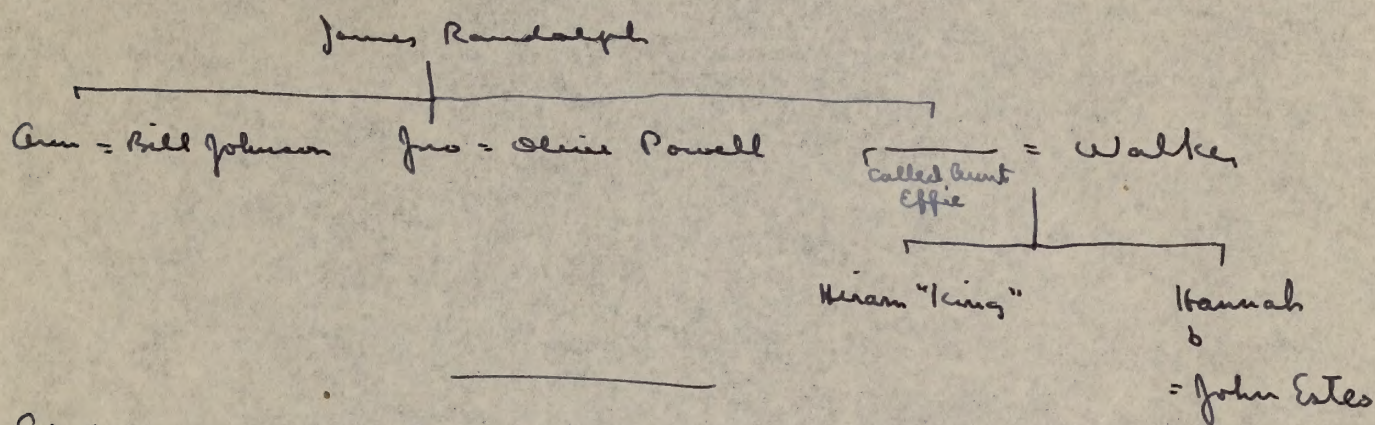 James Randolph
Ann = Bill Johnson Jno = Olivie Powell = Walker
Called Aunt
Effie
Hiram "King" Hannah
b
= John Estes